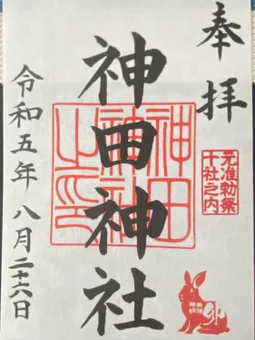 奉拝
神田神社
令和五年八月二十六日
元准勅祭
十社之内
神田
神社
之印
卯